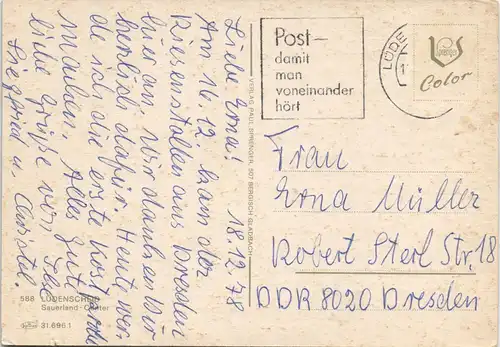 Liebe Erna! 18.12.78
Am 16.12. kam der
Riesenstollen aus Dresden
hier an. Wir danken Dir
herzlich dafür. Heute wer-
de ich die erste Kostprobe
machen. Alles Gute
liebe Grüße von
Siegfried u. Christel.
588 LÜDENSCHEID
Sauerland-Center
31.696.1
VERLAG PAUL SPRENGER, 507 BERGISCH GLADBACH
Post –
damit
man
voneinander
hört
LÜDE
Color
Frau
Erna Müller
Robert Sterl Str. 18
DDR 8020 Dresden